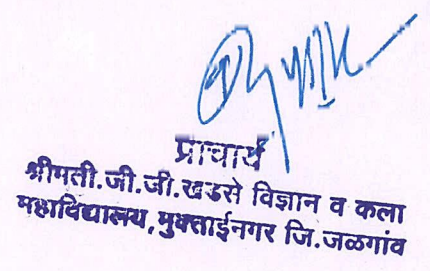 प्राचार्य
श्रीमती.जी.जी.खडसे विज्ञान व कला
महाविद्यालय,मुक्ताईनगर जि.जळगांव